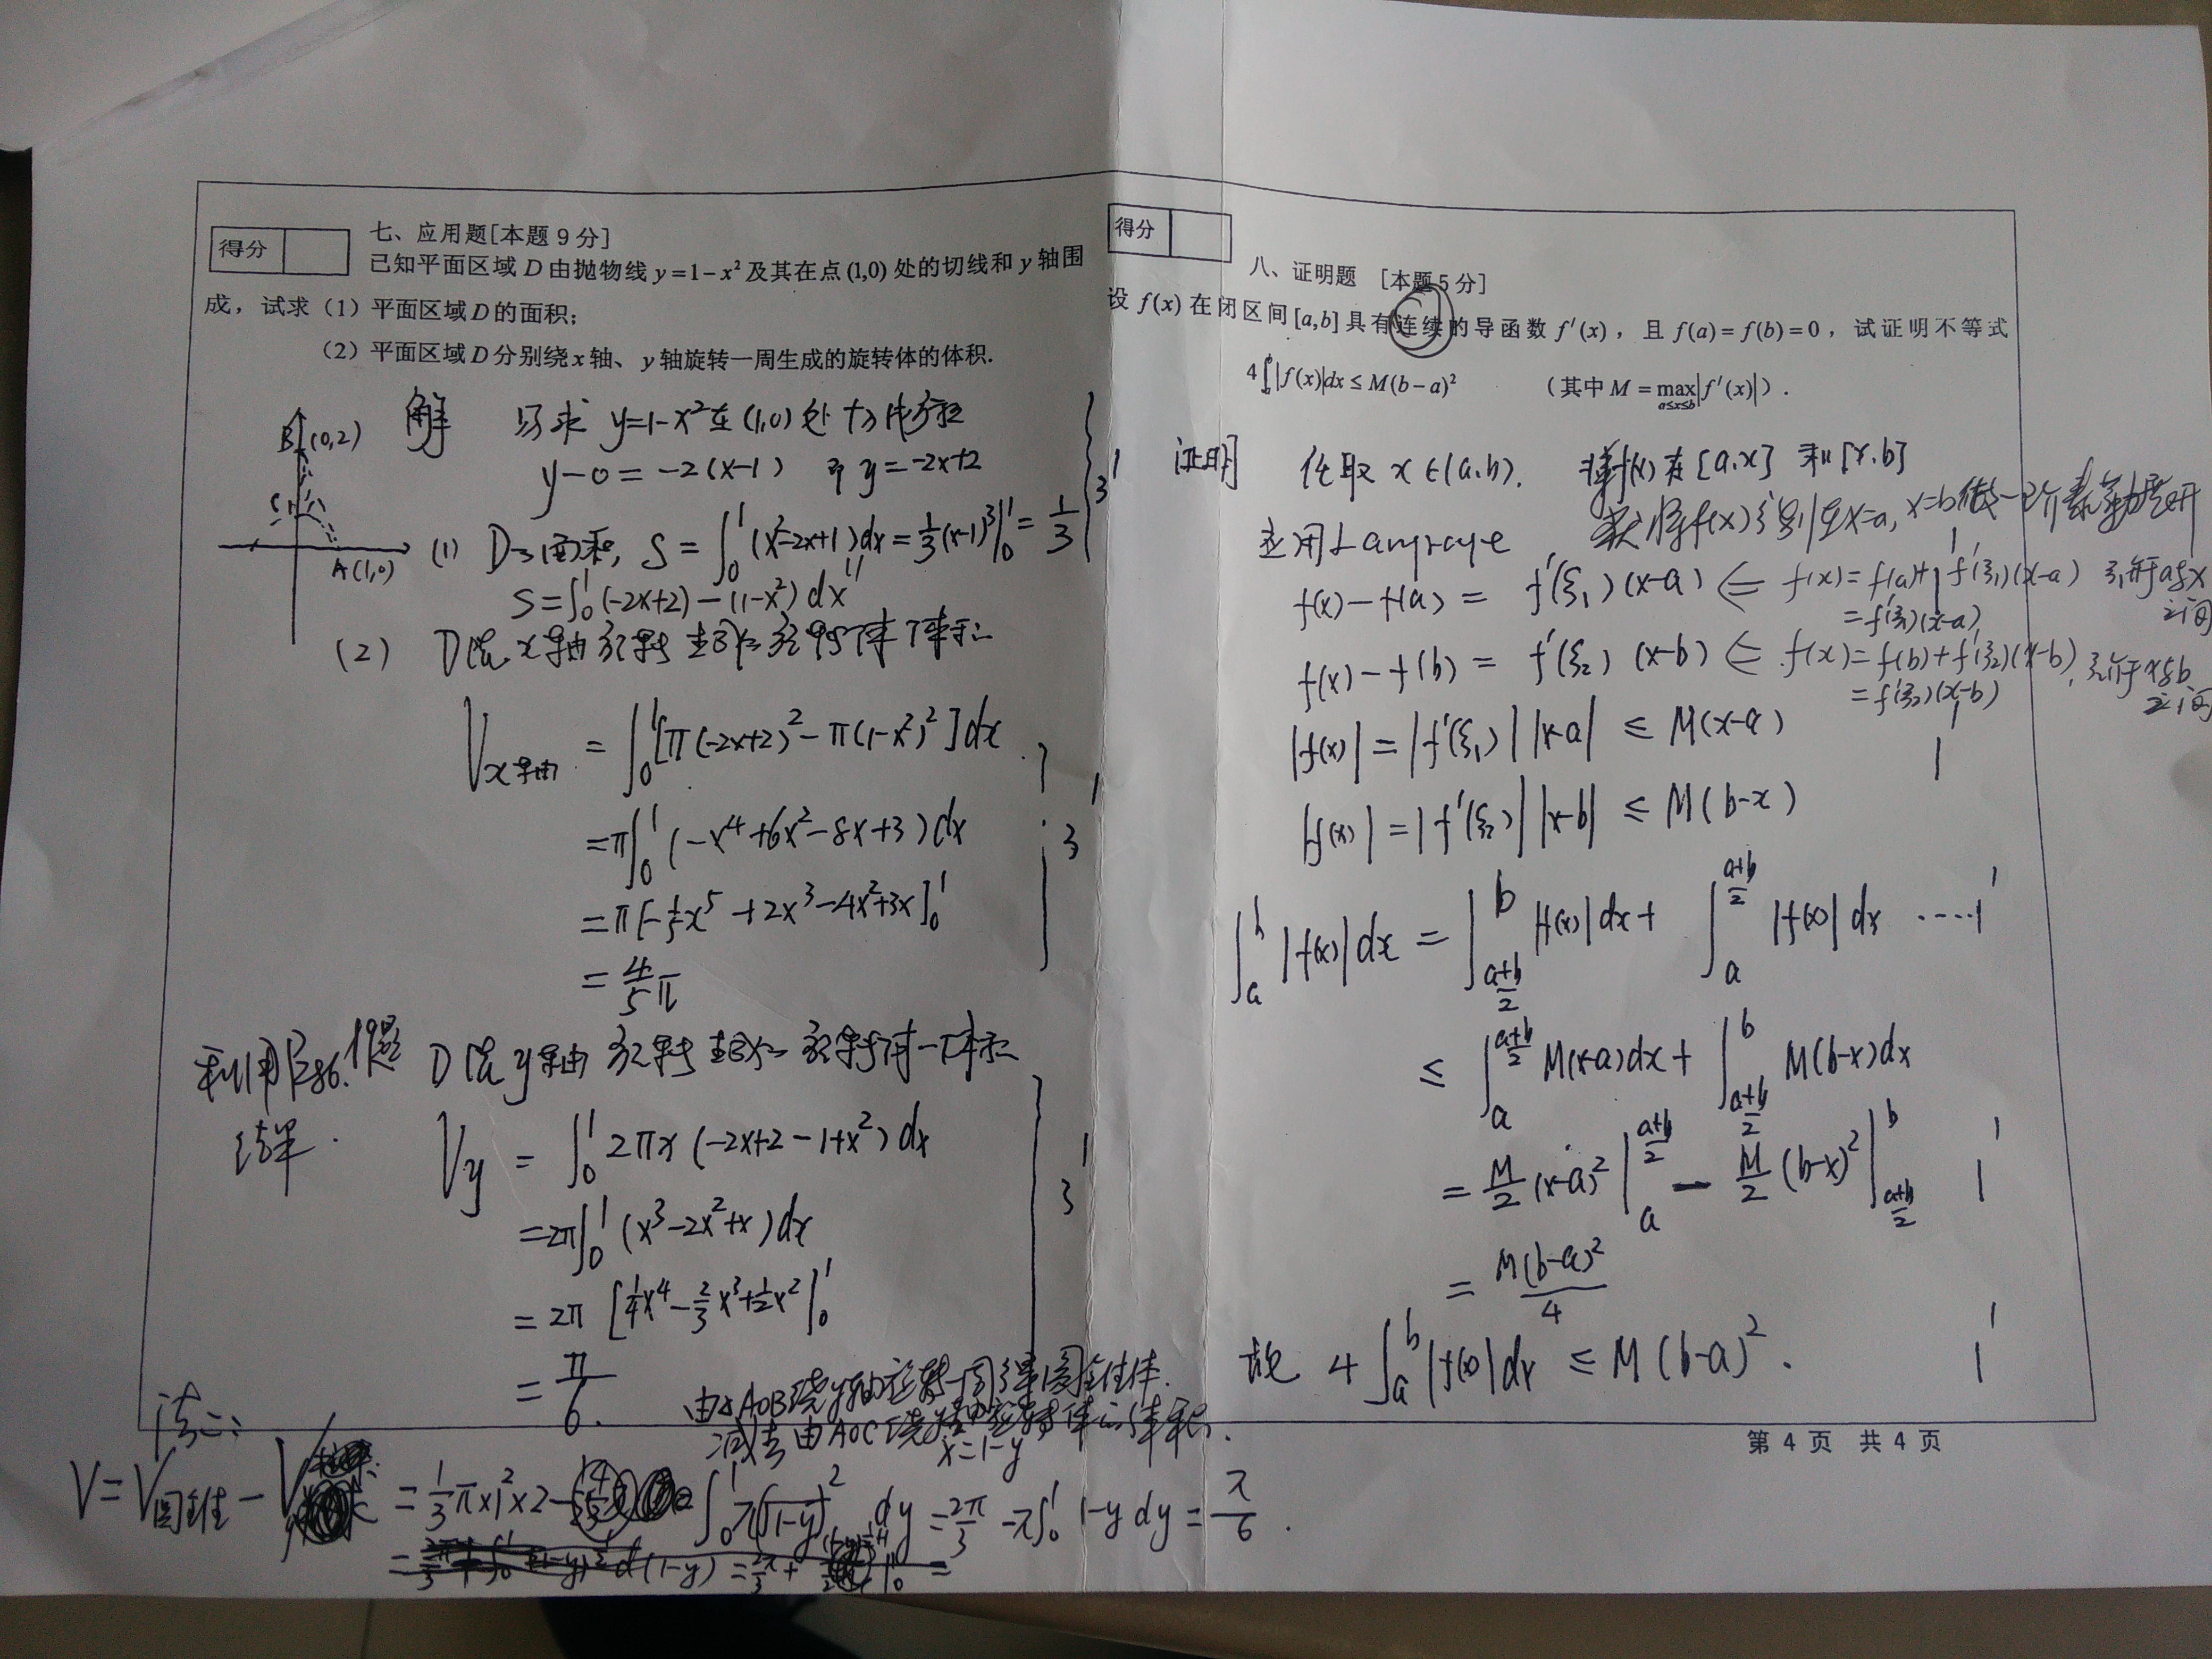 得分
七、应用题[本题 9 分]
已知平面区域 D 由抛物线 y=1-x² 及其在点 (1,0) 处的切线和 y 轴围
成，试求（1）平面区域 D 的面积；
（2）平面区域 D 分别绕 x 轴、y 轴旋转一周生成的旋转体的体积.
解 求 y=1-x² 在 (1,0) 处 切线方程
y-0=-2(x-1) 即 y=-2x+2
B (0,2)
C
A(1,0)
(1) D 面积, S=∫₀¹(x²-2x+1)dx=1/3(x-1)³|₀¹=1/3
3
S=∫₀¹(-2x+2)-(1-x²)dx
(2) D绕x轴旋转
V x轴 =∫₀¹[π(-2x+2)²-π(1-x²)²]dx
=π∫₀¹(-x⁴+6x²-8x+3)dx
3
=π[-1/5x⁵+2x³-4x²+3x]₀¹
=4/5π
利用P286.
D绕y轴旋转
Vy=∫₀¹2πx(-2x+2-1+x²)dx
3
=2π∫₀¹(x³-2x²+x)dx
=2π[1/4x⁴-2/3x³+1/2x²|₀¹
=π/6.
由△AOB绕y轴旋转一周得圆锥体.
减去由AOC绕y轴旋转体的体积.
x=1-y
法二:
V=V圆锥-V =1/3π×1²×2- ∫₀¹π(√1-y)²dy=2π/3-π∫₀¹1-y dy=π/6.
得分
八、证明题 [本题 5 分]
设 f(x) 在闭区间 [a,b] 具有连续的导函数 f′(x)，且 f(a)=f(b)=0，试证明不等式
4∫|f(x)|dx≤M(b-a)² （其中 M=max a≤x≤b |f′(x)|）.
证明 任取 x∈(a,b). 对f(x)在[a,x]和[x,b]
应用Lagrange
f(x)-f(a)=f′(ξ₁)(x-a) ⇐ f(x)=f(a)+f′(ξ₁)(x-a)
=f′(ξ₁)(x-a)
f(x)-f(b)=f′(ξ₂)(x-b) ⇐ f(x)=f(b)+f′(ξ₂)(x-b),
=f′(ξ₂)(x-b)
|f(x)|=|f′(ξ₁)||x-a|≤M(x-a)
|f(x)|=|f′(ξ₂)||x-b|≤M(b-x)
∫ₐᵇ|f(x)|dx=∫_{(a+b)/2}^{b}|f(x)|dx+∫_{a}^{(a+b)/2}|f(x)|dx ····1
≤∫_{a}^{(a+b)/2}M(x-a)dx+∫_{(a+b)/2}^{b}M(b-x)dx
=M/2(x-a)²|_{a}^{(a+b)/2}-M/2(b-x)²|_{(a+b)/2}^{b}
=M(b-a)²/4
故 4∫ₐᵇ|f(x)|dx≤M(b-a)².
第 4 页 共 4 页